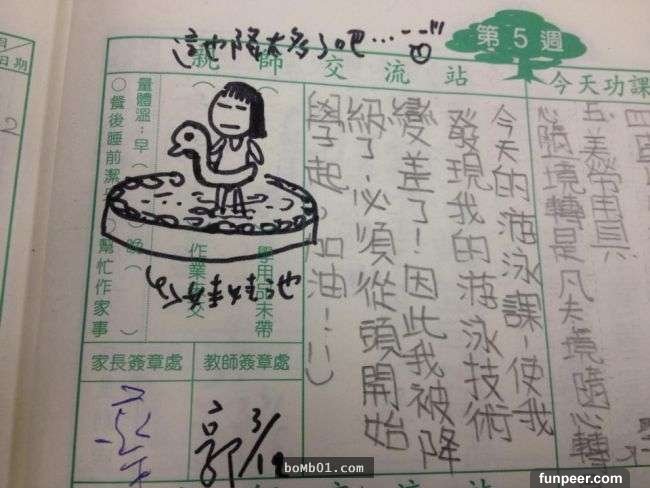 這也降太多了吧...
第5週
親師交流站
今天功課
五、美勞用具
心隨境轉是凡夫境隨心轉
今天的游泳課,使我
發現我的游泳技術
變差了!因此我被降
級了,必須從頭開始
學起。加油!!:)
學用品未帶
作業
量體溫:早( 晚( )
○餐後睡前潔 幫忙作家事
日期
2
家長簽章處
教師簽章處
郭 3/12
boMb01.com
funpeer.com